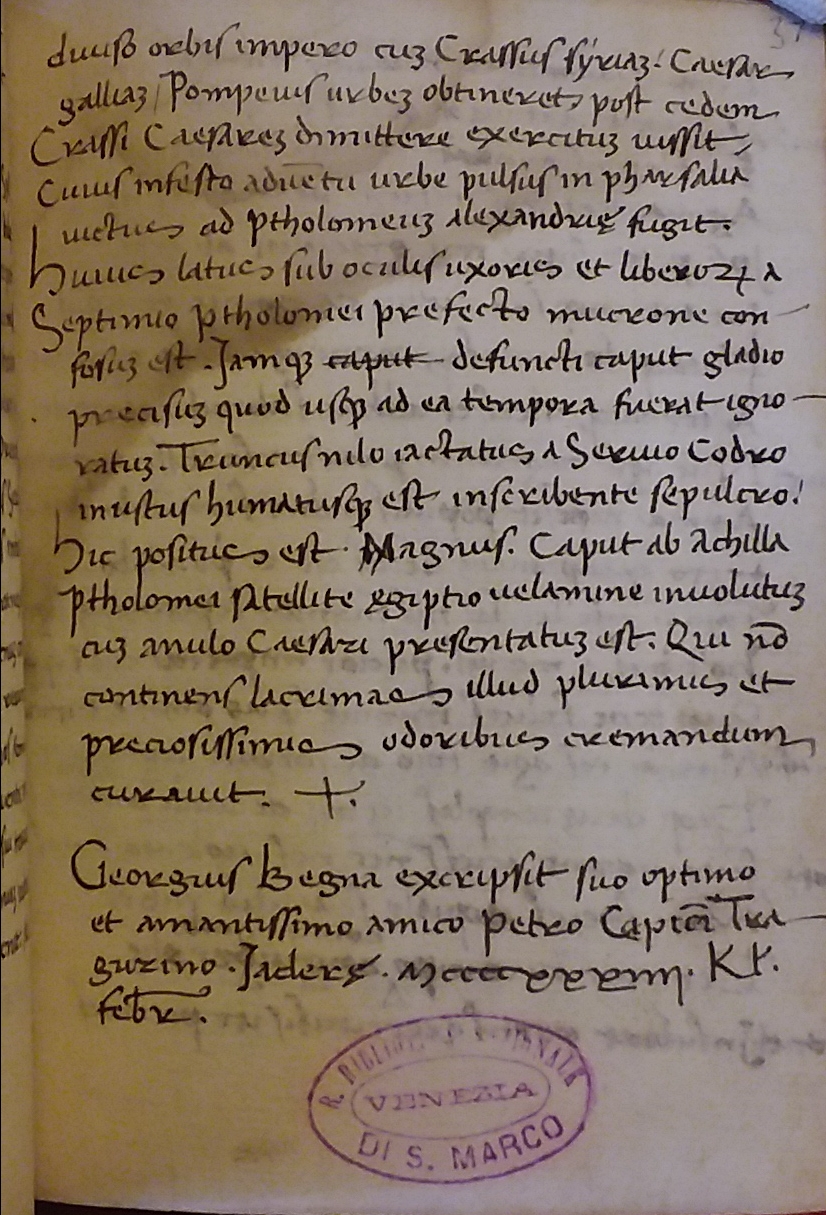 diuiso orbis impero cuꝫ Crassus sÿriaꝫ: Caesar
galliaꝫ / Pompeius urbeꝫ obtineret, post cedem
Crassi Caesareꝫ dimittere exercituꝫ iussit,
Cuius infesto aduētu urbe pulsus in pharsalia
uictus ad Ptholomeuꝫ alexandrię fugit.
Huius latus sub oculis uxoris et liberoꝝ a
Septimio Ptholomei prefecto mucrone con
fosuꝫ est. Jamqꝫ caput defuncti caput gladio
precisuꝫ quod usqꝫ ad ea tempora fuerat igno
ratuꝫ. Truncus nilo iactatus a Seruio Codro
inustus humatusqꝫ est inscribente sepulcro:
Hic positus est. Magnus. Caput ab achilla
Ptholomei satellite ęgiptio uelamine inuolutuꝫ
cuꝫ anulo Caesari presentatuꝫ est. Qui nō
continens lacrimas illud plurimis et
preciosissimis odoribus cremandum
curauit. +.
Georgius Begna excripsit suo optimo
et amantissimo amico Petro Cąpiōi Tra
gurino. Jaderę. Mccccxxxiiii. Kł.
febr̄.
R. BIBLIOTECA NAZIONALE
VENEZIA
DI S. MARCO